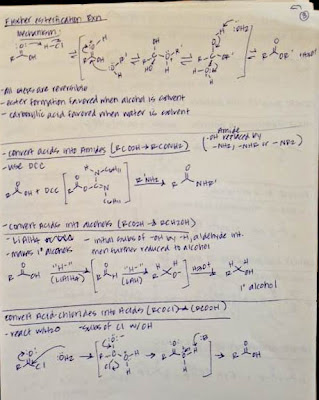 Fischer esterification Rxn
③
Mechanism:
- all steps are reversible
- ester formation favored when alcohol is solvent
- carboxylic acid favored when water is solvent
- convert acids into Amides (RCOOH → RCONH2)
Amide
(-OH replaced by
-NH2, -NHR or -NR2)
- use DCC
R OH + DCC
R'NH2
R NHR'
- convert acids into alcohols (RCO2H → RCH2OH)
- LiAlH4
- initial subs of -OH by -H, aldehyde int.
- makes 1° alcohols
then further reduced to alcohol
R OH "H-" (LiAlH4) R H "H-" (LAH) H3O+ R OH
1° alcohol
convert Acid chlorides into Acids (RCOCl) → (RCOOH)
- react w/ H2O
- subs of Cl w/ OH
R Cl :ÖH2
R OH